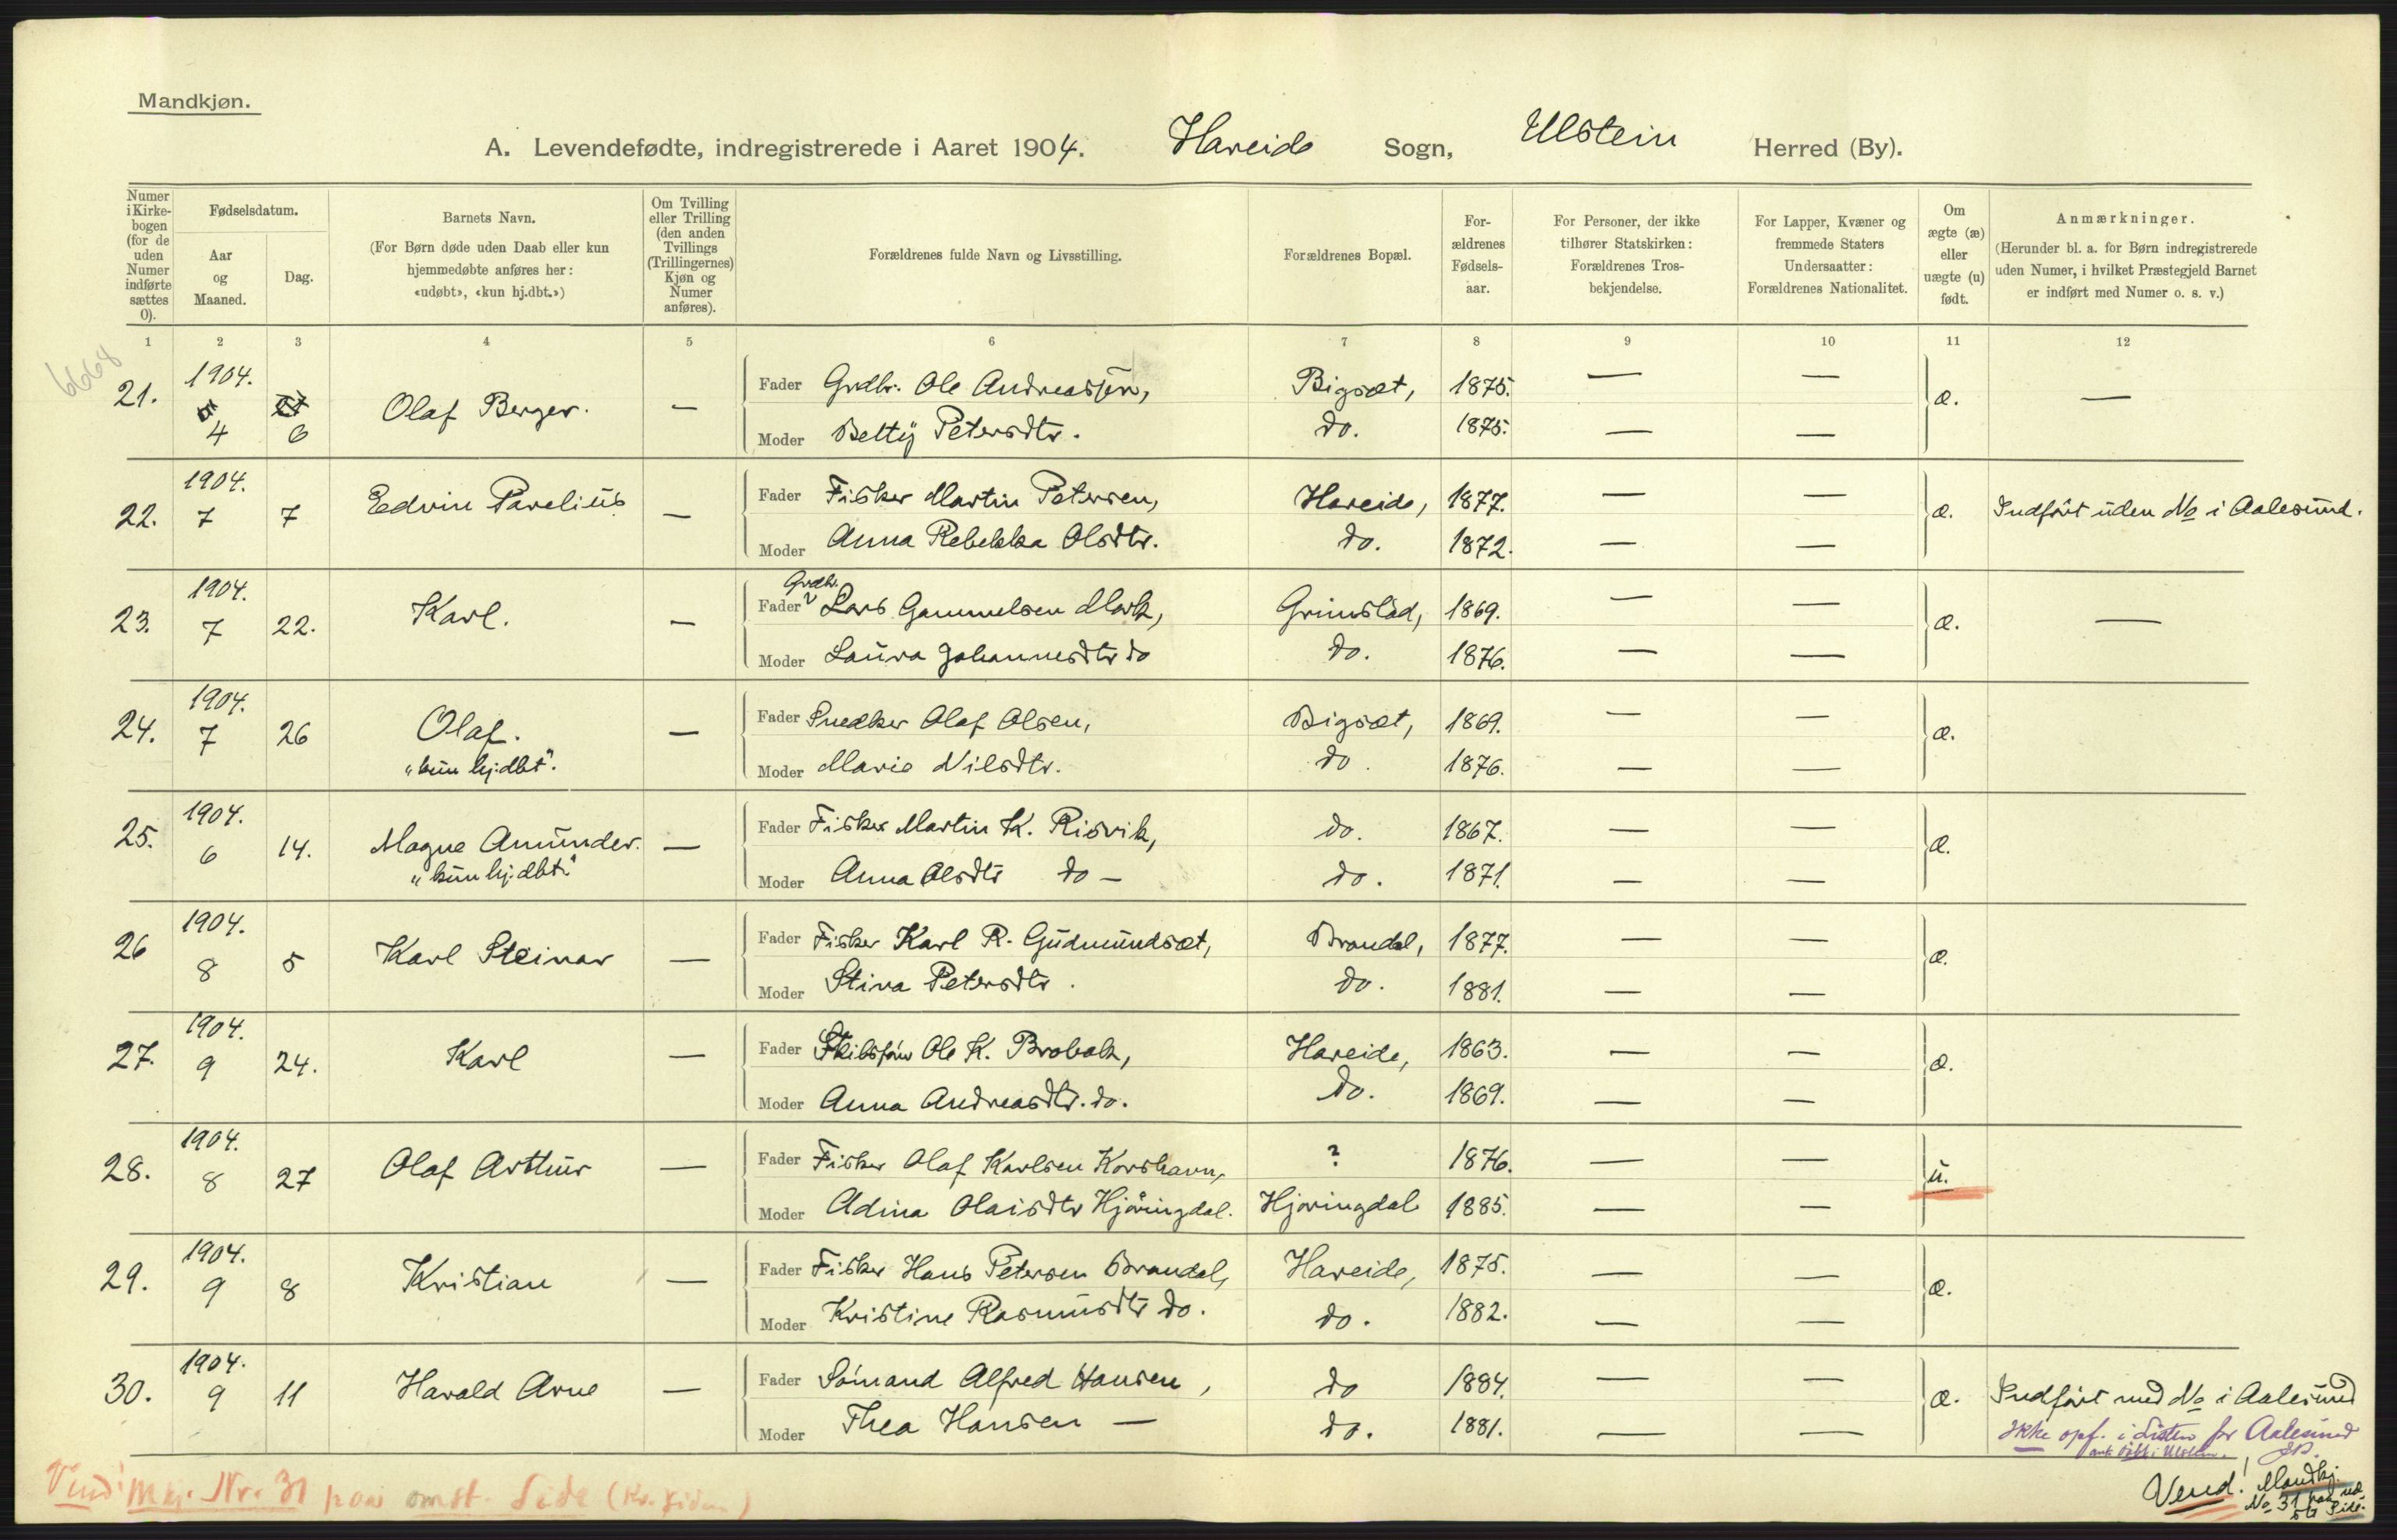 Mandkjøn.
A. Levendefødte, indregistrerede i Aaret 1904. Hareide Sogn, Ulstein Herred (By).
Numer i Kirkebogen (for de uden Numer indførte sættes 0).
Fødselsdatum.
Aar og Maaned.
Dag.
Barnets Navn.
(For Børn døde uden Daab eller kun hjemmedøbte anføres her: «udøbt», «kun hj.dbt.»)
Om Tvilling eller Trilling (den anden Tvillings (Trillingernes) Kjøn og Numer anføres).
Forældrenes fulde Navn og Livsstilling.
Forældrenes Bopæl.
Forældrenes Fødselsaar.
For Personer, der ikke tilhører Statskirken: Forældrenes Trosbekjendelse.
For Lapper, Kvæner og fremmede Staters Undersaatter: Forældrenes Nationalitet.
Om ægte (æ) eller uægte (u) født.
Anmærkninger.
(Herunder bl. a. for Børn indregistrerede uden Numer, i hvilket Præstegjeld Barnet er indført med Numer o. s. v.)
1 2 3 4 5 6 7 8 9 10 11 12
6668
21. 1904. 4 6 Olaf Berger. — Fader Grdbr. Ole Andreassen, Bigsæt, 1875. — — æ. —
Moder Betty Petersdtr. do. 1875. — —
22. 1904. 7 7 Edvin Parelius — Fader Fisker Martin Petersen, Hareide, 1877. — — æ. Indført uden No i Aalesund.
Moder Anna Rebekka Olsdtr. do. 1872. — —
23. 1904. 7 22. Karl. — Fader Grdbr. Lars Gammelsen Mork, Grimstad, 1869. — — æ. —
Moder Laura Johannesdtr do do. 1876. — —
24. 1904. 7 26 Olaf. — Fader Snedker Olaf Olsen, Bigsæt, 1869. — — æ.
"kun hj.dbt". Moder Marie Nilsdtr. do. 1876. — —
25. 1904. 6 14. Magne Amunder. — Fader Fisker Martin K. Risvik, do. 1867. — — æ.
"kun hj.dbt." Moder Anna Olsdtr do — do. 1871. — —
26 1904. 8 5 Karl Steinar — Fader Fisker Karl R. Gudmundsæt, Brandal, 1877. — — æ.
Moder Stina Petersdtr. do. 1881. — —
27. 1904. 9 24. Karl — Fader Skibsfører Ole K. Brobak, Hareide, 1863. — — æ.
Moder Anna Andreasdtr. do. do. 1869. — —
28. 1904. 8 27 Olaf Arthur — Fader Fisker Olaf Karlsen Korshavn, ? 1876. — — u.
Moder Adina Olaisdtr Hjøringdal. Hjøringdal 1885. — —
29. 1904. 9 8 Kristian — Fader Fisker Hans Petersen Brandal, Hareide, 1875. — — æ.
Moder Kristine Rasmusdtr do. do. 1882. — —
30. 1904. 9 11 Harald Arne — Fader Sømand Alfred Hansen, do 1884. — — æ. Indført med No i Aalesund
Moder Thea Hansen — do. 1881. — —
Ikke opf. i Listen for Aalesund
Vend! Mkj. Nr. 31 paa omst. Side
Vend! Mandkj. No 31 paa
Side.